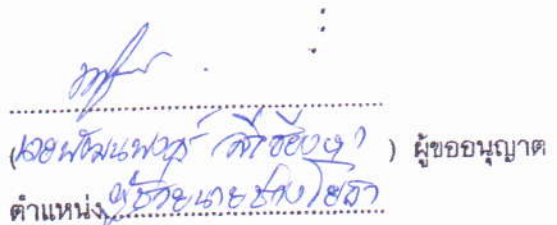 (นายพัฒนพงษ์ ) ผู้ขออนุญาต
ตำแหน่ง ผู้ช่วยนายช่างโยธา